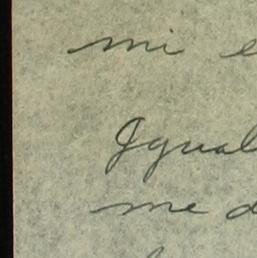 mi e
Igual
me d